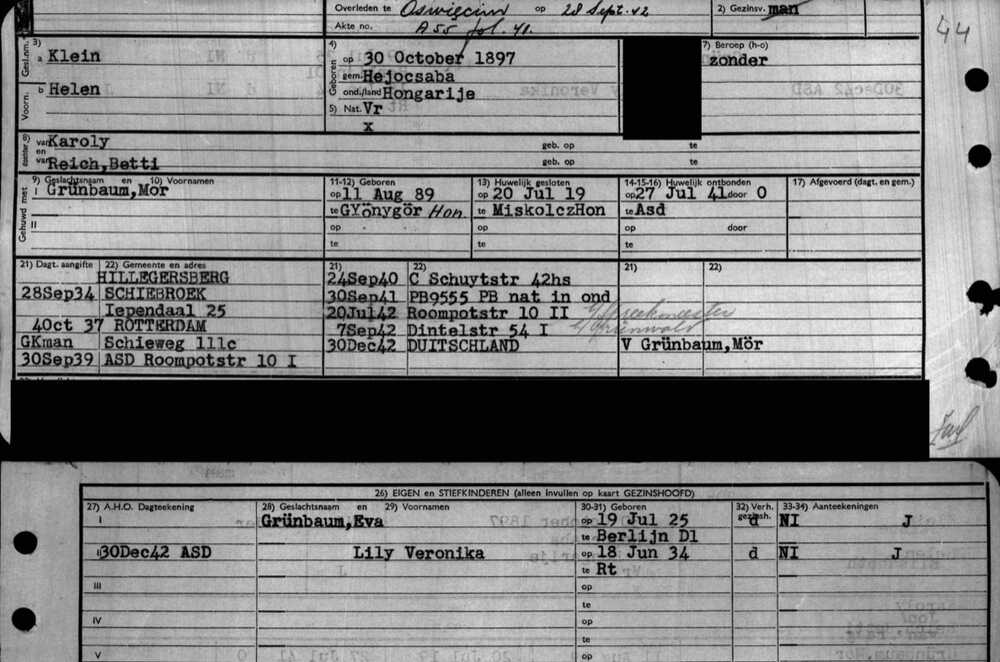 Overleden te Oswięcim op 28 Sept. 42
2) Gezinsv. man
Akte no. A 55 fol. 41.
44
Gesl.nm. 3) a Klein
Voorn. b Helen
4) Geboren op 30 October 1897
gem. Hejocsaba
ond./land Hongarije
5) Nat. Vr
x
7) Beroep (h-o)
zonder
van Karoly geb. op te
en
van Reich,Betti geb. op te
Gehuwd met
9) Geslachtsnaam en 10) Voornamen
I Grünbaum,Mor
II
11-12) Geboren
op 11 Aug 89
te GYönygör Hon.
op
te
13) Huwelijk gesloten
op 20 Jul 19
te MiskolczHon
op
te
14-15-16) Huwelijk ontbonden
op 27 Jul 41 door O
te Asd
op door
te
17) Afgevoerd (dagt. en gem.)
21) Dagt. aangifte 22) Gemeente en adres
HILLEGERSBERG
28Sep34 SCHIEBROEK
Iependaal 25
4Oct 37 ROTTERDAM
GKman Schieweg 111c
30Sep39 ASD Roompotstr 10 I
21) 22)
24Sep40 C Schuytstr 42hs
30Sep41 PB9555 PB nat in ond
20Jul42 Roompotstr 10 II
7Sep42 Dintelstr 54 I
30Dec42 DUITSCHLAND
21) 22)
Grünwald
V Grünbaum,Mör
26) EIGEN en STIEFKINDEREN (alleen invullen op kaart GEZINSHOOFD)
27) A.H.O. Dagteekening 28) Geslachtsnaam en 29) Voornamen 30-31) Geboren 32) Verh. gezinsh. 33-34) Aanteekeningen
I Grünbaum,Eva op 19 Jul 25 d NI J
te Berlijn Dl
II 30Dec42 ASD Lily Veronika op 18 Jun 34 d NI J
te Rt
III op
te
IV op
te
V op